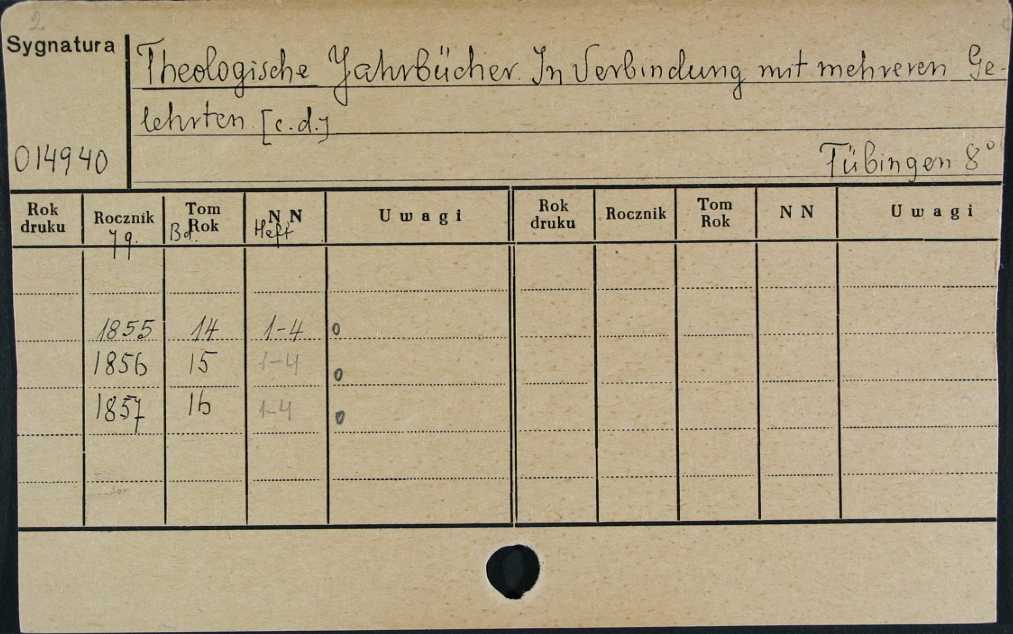 2
Sygnatura
Theologische Jahrbücher. In Verbindung mit mehreren Ge-
lehrten. [c.d.]
014940
Tübingen 8°
Rok druku Rocznik Tom Rok N N Uwagi Rok druku Rocznik Tom Rok N N Uwagi
Jg. Bd. Heft
1855 14 1-4 o
1856 15 1-4 o
1857 16 1-4 o